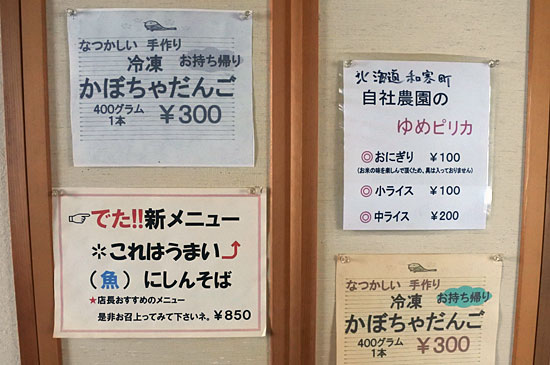 なつかしい 手作り
冷凍 お持ち帰り
かぼちゃだんご
400グラム
1本
￥300
☞でた!!新メニュー
＊これはうまい⤴
（魚）にしんそば
★店長おすすめのメニュー
是非お召上ってみて下さいネ。￥850
北海道 和寒町
自社農園の
ゆめピリカ
◎おにぎり ￥100
(お米の味を楽しんで頂くため、具は入っておりません)
◎小ライス ￥100
◎中ライス ￥200
なつかしい 手作り
冷凍 お持ち帰り
かぼちゃだんご
400グラム
1本
￥300